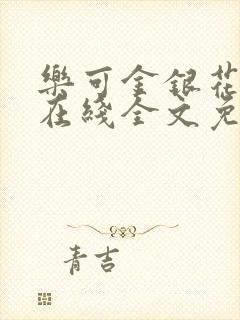 樂可金銀花
在綫全文免
青吉